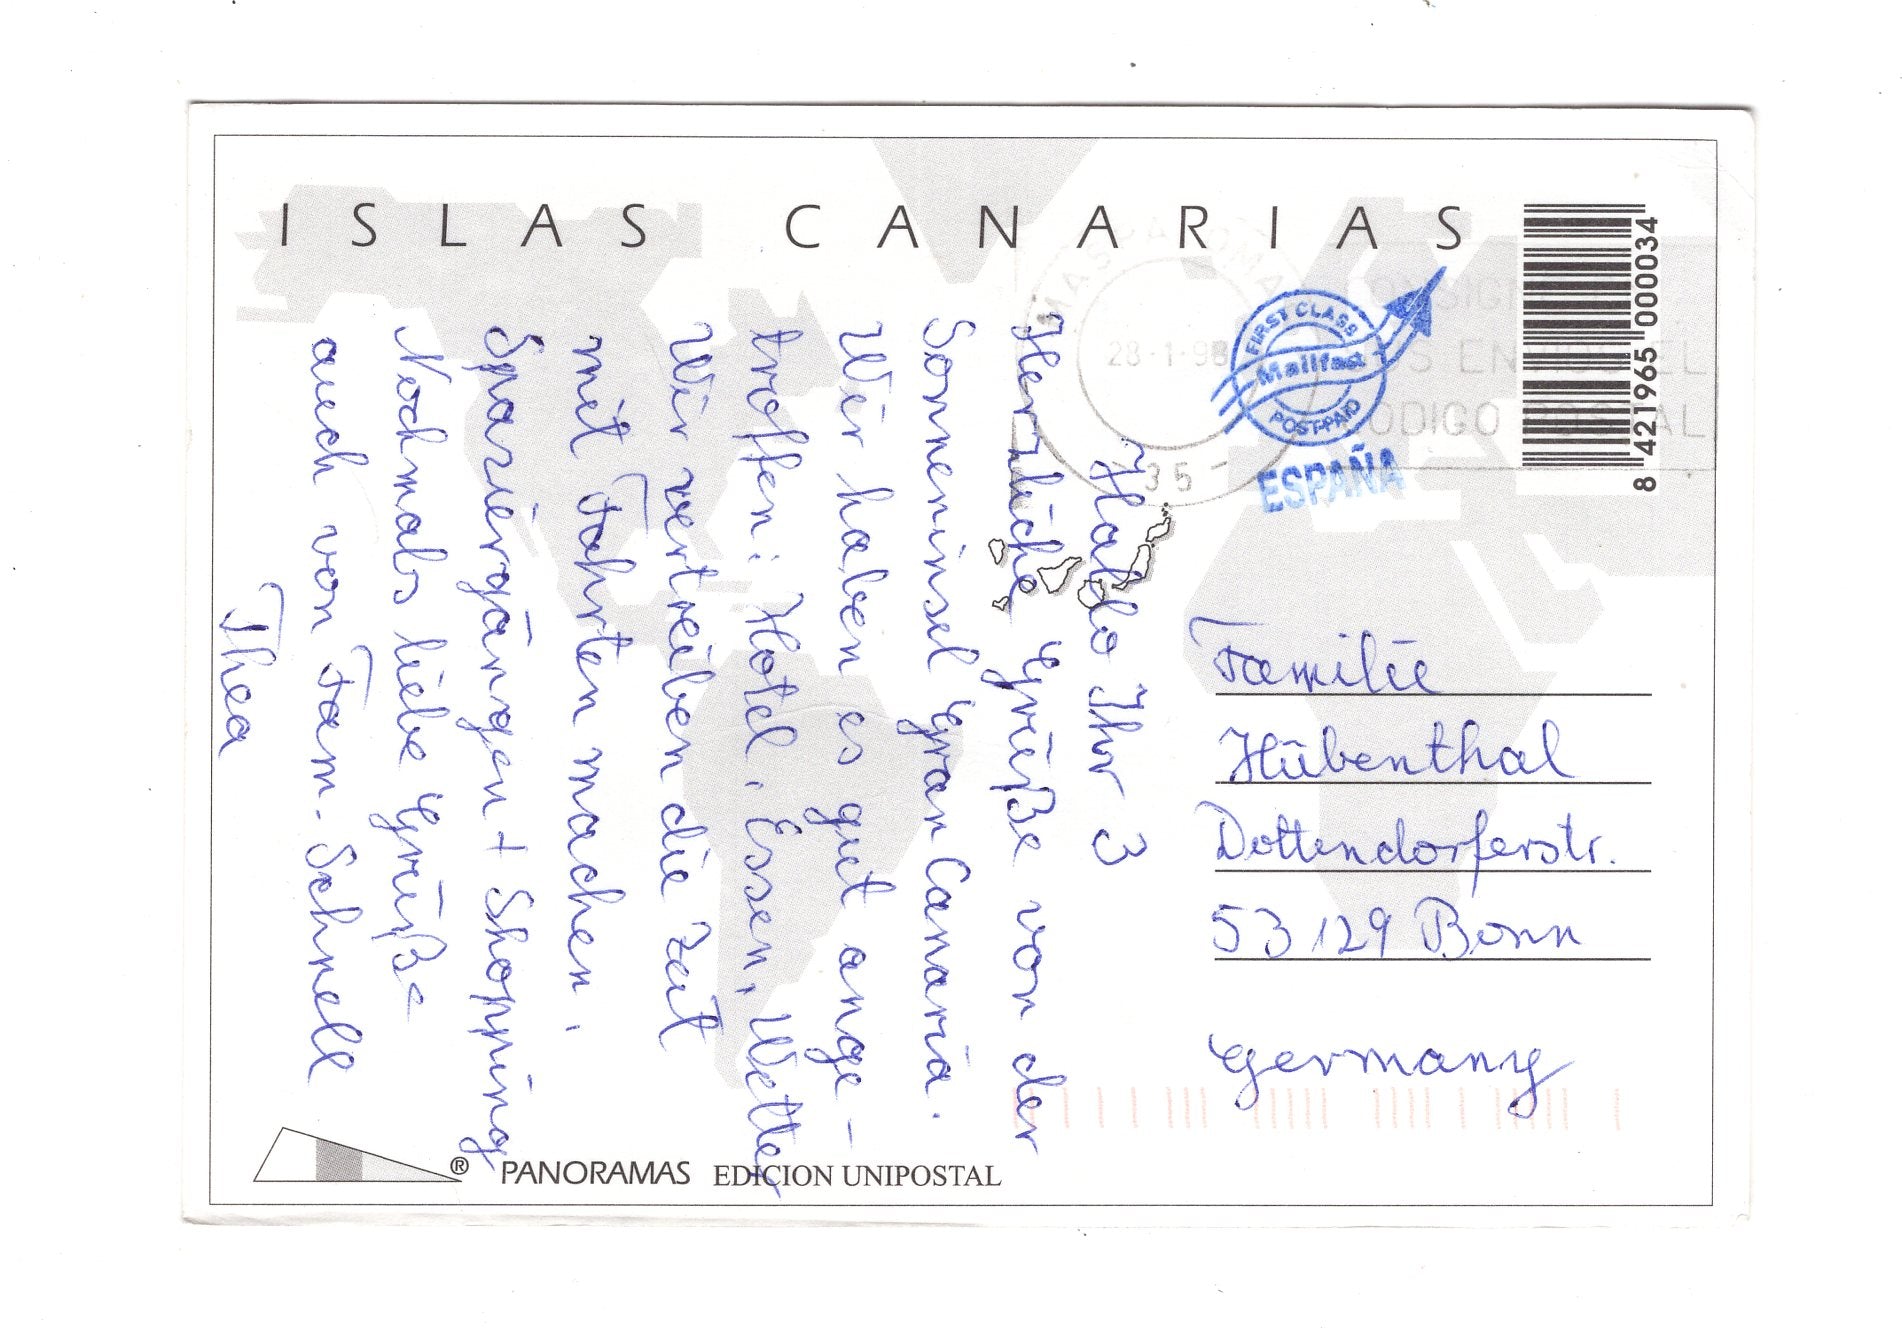 ISLAS CANARIAS
MASPALOMAS
28-1-98
35
CODIGO POSTAL
FIRST CLASS
Mailfast
POST-PAID
ESPAÑA
8 421965 000034
Hallo Ihr 3
Herzliche Grüße von der
Sonneninsel Gran Canaria.
Wir haben es gut ange-
troffen: Hotel, Essen, Wetter
Wir vertreiben die Zeit
mit Fahrten machen,
Spaziergängen + Shopping
Nochmals liebe Grüße
auch von Fam. Schnell
Thea
Familie
Hübenthal
Dottendorferstr.
53129 Bonn
Germany
® PANORAMAS EDICION UNIPOSTAL